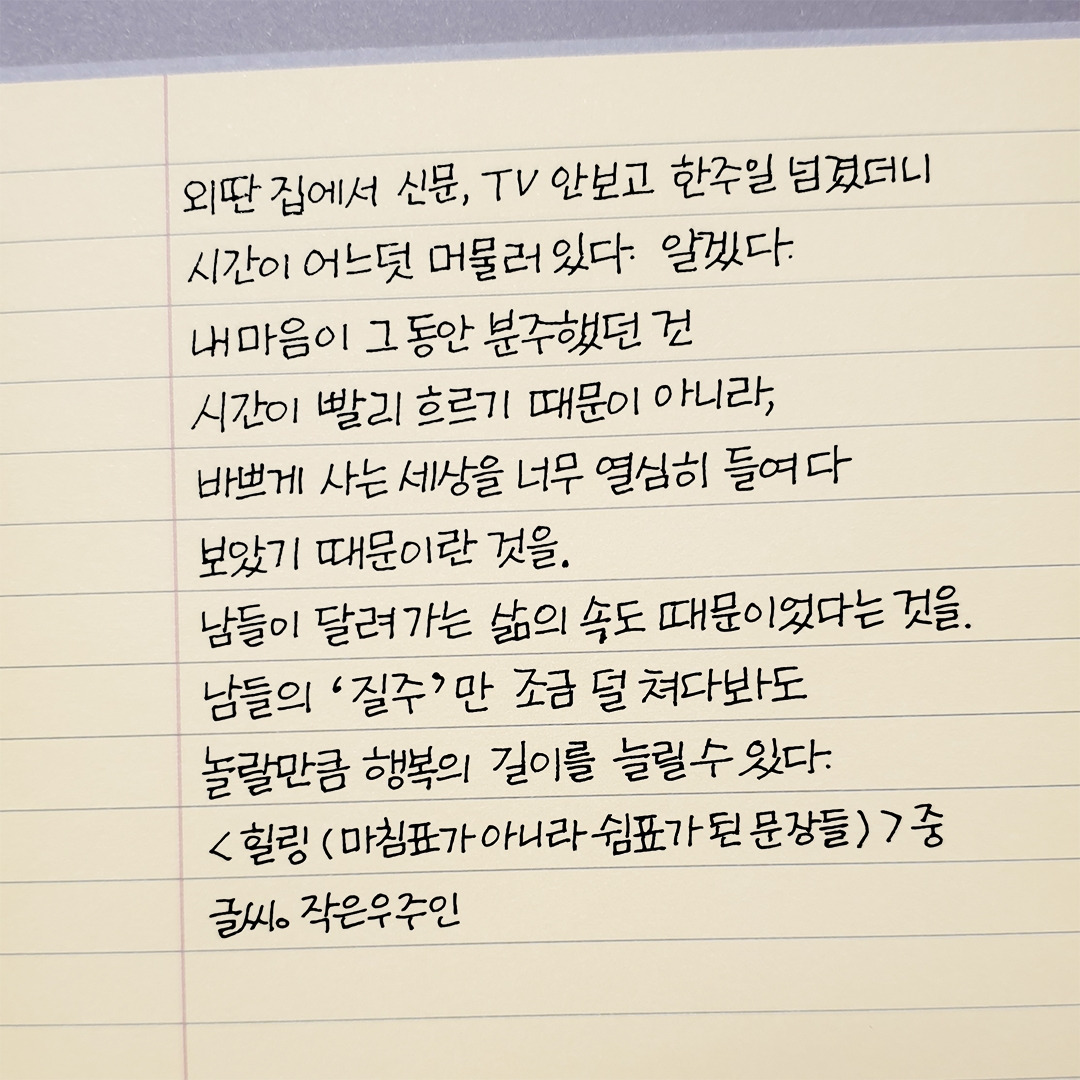 외딴 집에서 신문, TV 안보고 한주일 넘겼더니
시간이 어느덧 머물러 있다. 알겠다.
내 마음이 그동안 분주했던 건
시간이 빨리 흐르기 때문이 아니라,
바쁘게 사는 세상을 너무 열심히 들여다
보았기 때문이란 것을.
남들이 달려가는 삶의 속도 때문이었다는 것을.
남들의 ‘질주’만 조금 덜 쳐다봐도
놀랄만큼 행복의 길이를 늘릴 수 있다.
<힐링 (마침표가 아니라 쉼표가 된 문장들)> 중
글씨。작은우주인